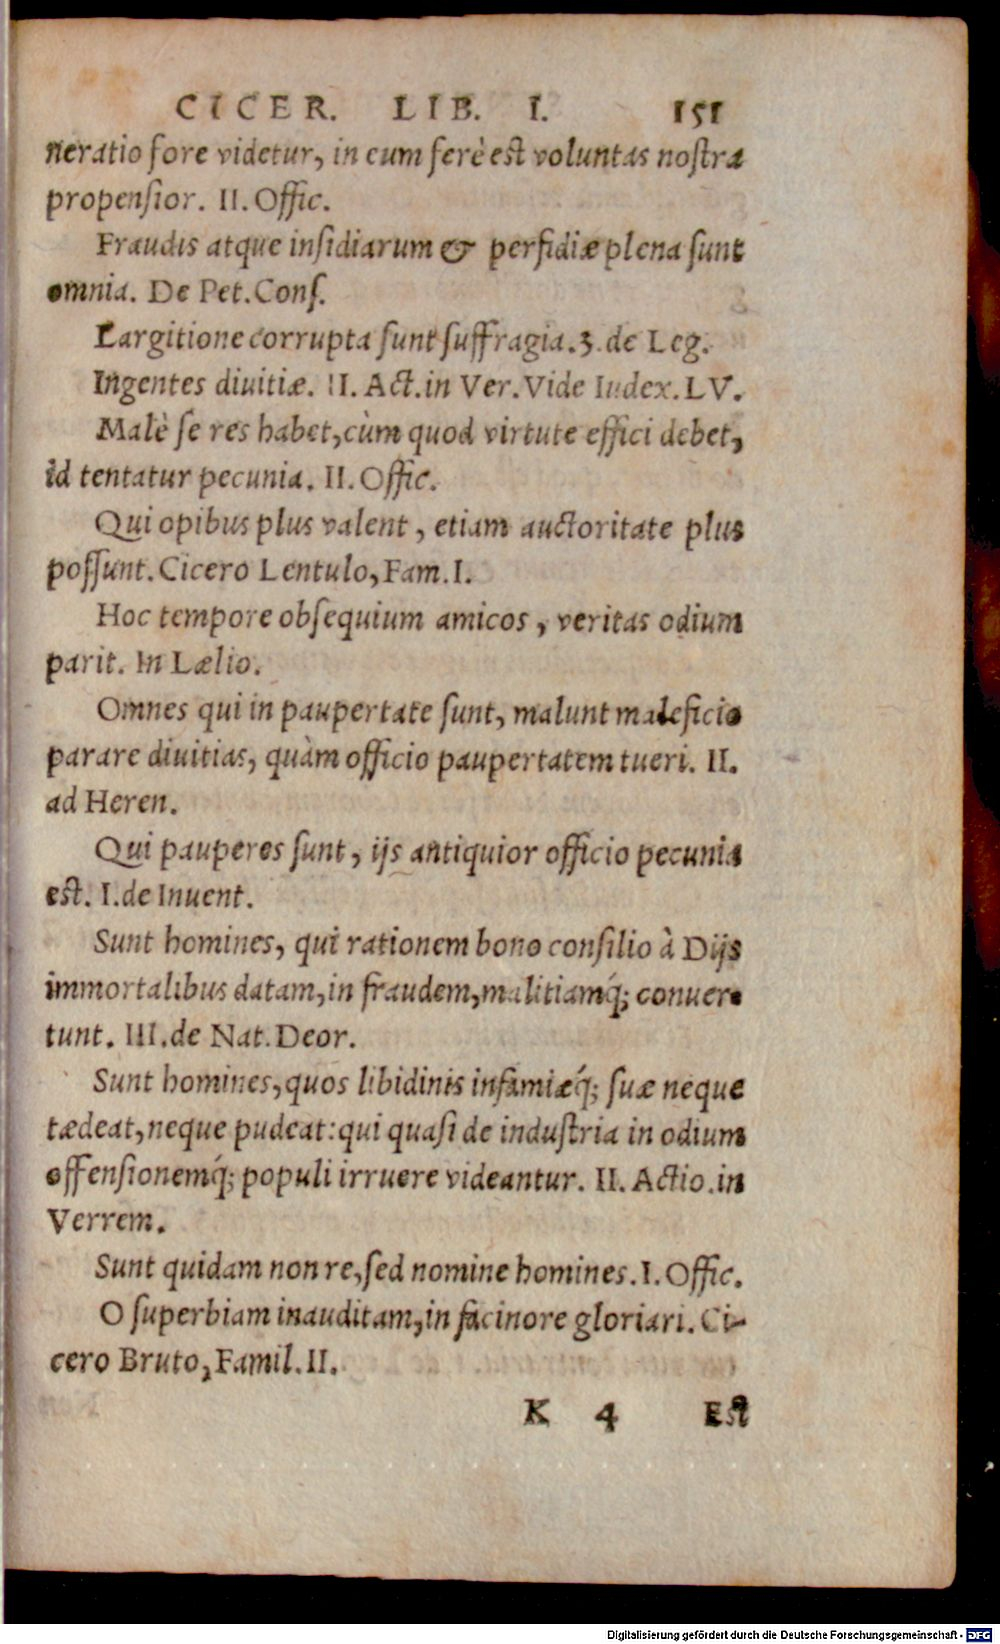 CICER. LIB. I. 151
neratio fore videtur, in eum ferè est voluntas nostra
propensior. II. Offic.
Fraudis atque insidiarum & perfidiæ plena sunt
omnia. De Pet. Cons.
Largitione corrupta sunt suffragia. 3. de Leg.
Ingentes diuitiæ. II. Act. in Ver. Vide Iudex. LV.
Malè se res habet, cùm quod virtute effici debet,
id tentatur pecunia. II. Offic.
Qui opibus plus valent, etiam auctoritate plus
possunt. Cicero Lentulo, Fam. I.
Hoc tempore obsequium amicos, veritas odium
parit. In Lælio.
Omnes qui in paupertate sunt, malunt maleficio
parare diuitias, quàm officio paupertatem tueri. II.
ad Heren.
Qui pauperes sunt, ijs antiquior officio pecunia
est. I. de Inuent.
Sunt homines, qui rationem bono consilio à Dijs
immortalibus datam, in fraudem, malitiamq́; conuer-
tunt. III. de Nat. Deor.
Sunt homines, quos libidinis infamiæq́; suæ neque
tædeat, neque pudeat: qui quasi de industria in odium
offensionemq́; populi irruere videantur. II. Actio. in
Verrem.
Sunt quidam non re, sed nomine homines. I. Offic.
O superbiam inauditam, in facinore gloriari. Ci-
cero Bruto, Famil. II.
K 4 Est
Digitalisierung gefördert durch die Deutsche Forschungsgemeinschaft - DFG